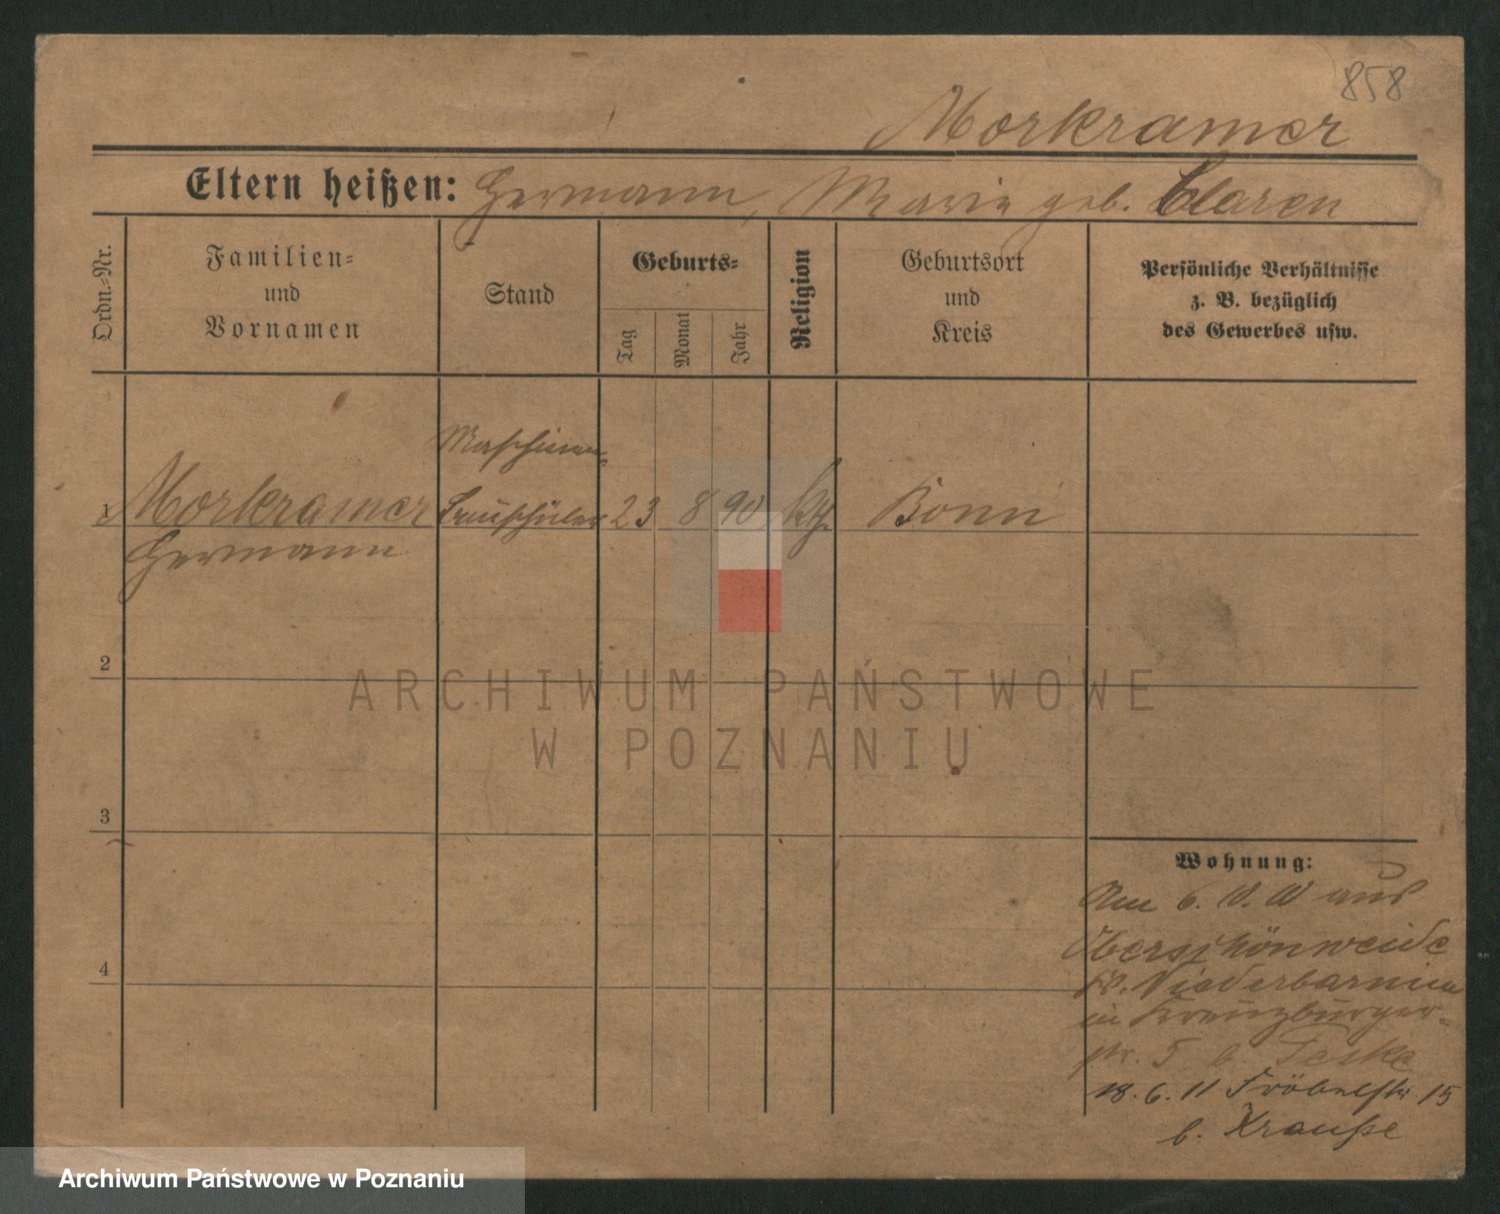 858
Morkramer
Eltern heißen: Hermann, Marie geb. Claren
Ordn.-Nr.
Familien-
und
Vornamen
Stand
Geburts-
Tag
Monat
Jahr
Religion
Geburtsort
und
Kreis
Persönliche Verhältnisse
z. B. bezüglich
des Gewerbes usw.
Maschinen-
1 Morkramer bauschüler 23 8 90 kth. Bonn
Hermann
2
3
4
Wohnung:
Am 6. aus
Oberschönweide
Kr. Niederbarnim
in Kreuzburger-
str. 5 b. Teske
18. 6. 11 Fröbelstr. 15
b. Krauße
ARCHIWUM PAŃSTWOWE
W POZNANIU
Archiwum Państwowe w Poznaniu